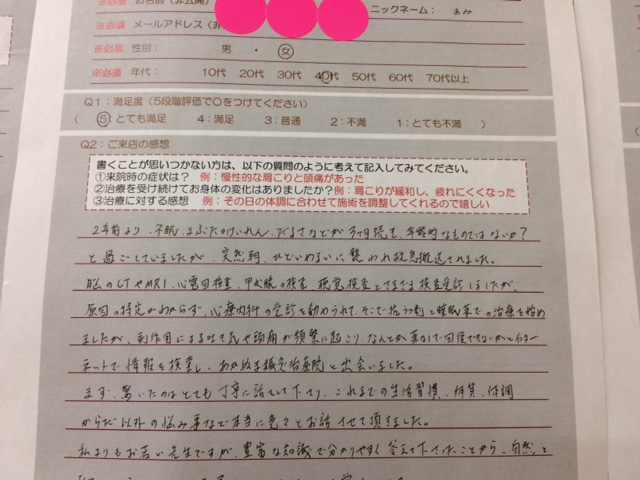 ※必須 お名前（非公開）
ニックネーム： あみ
※必須 メールアドレス（非
※必須 性別： 男 ・ 女
※必須 年代： 10代 20代 30代 40代 50代 60代 70代以上
Q1：満足度（5段階評価で〇をつけてください）
（ 5：とても満足 4：満足 3：普通 2：不満 1：とても不満 ）
Q2：ご来店の感想
書くことが思いつかない方は、以下の質問のように考えて記入してみてください。
①来院時の症状は？ 例：慢性的な肩こりと頭痛があった
②治療を受け続けてお身体の変化はありましたか？例：肩こりが緩和し、疲れにくくなった
③治療に対する感想 例：その日の体調に合わせて施術を調整してくれるので嬉しい
2年前より、不眠、まぶたのけいれん、だるさなどが3ヶ月続き、年齢的なものではないか？
と過ごしていましたが、突然朝、ひどいめまいに襲われ救急搬送されました。
脳のCTやMRI、心電図検査、甲状腺の検査、聴覚検査とさまざま検査受診しましたが、
原因の特定がわからず、心療内科の受診を勧められて、そこで抗うつ剤と睡眠薬での治療を始め
ましたが、副作用による吐き気や頭痛が頻繁に起こり、なんとか薬なしで回復できないかとインター
ネットで情報を探索し、あかぬき鍼灸治療院と出会いました。
まず、驚いたのはとても丁寧に話をして下さり、これまでの生活習慣、体質、体調
からだ以外の悩み事など本当に色々とお話させて頂きました。
私よりもお若い先生ですが、豊富な知識で分かりやすく答えて下さったことから、自然と